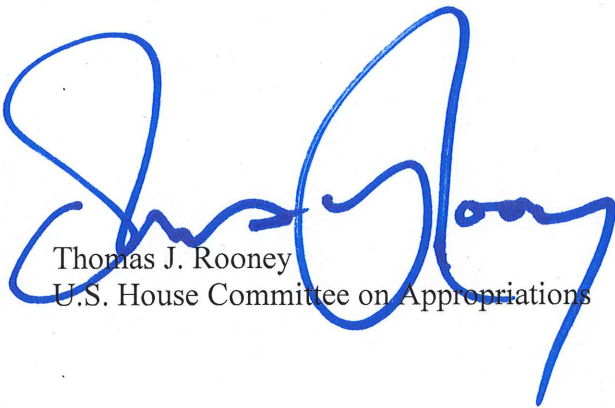 Thomas J. Rooney
U.S. House Committee on Appropriations